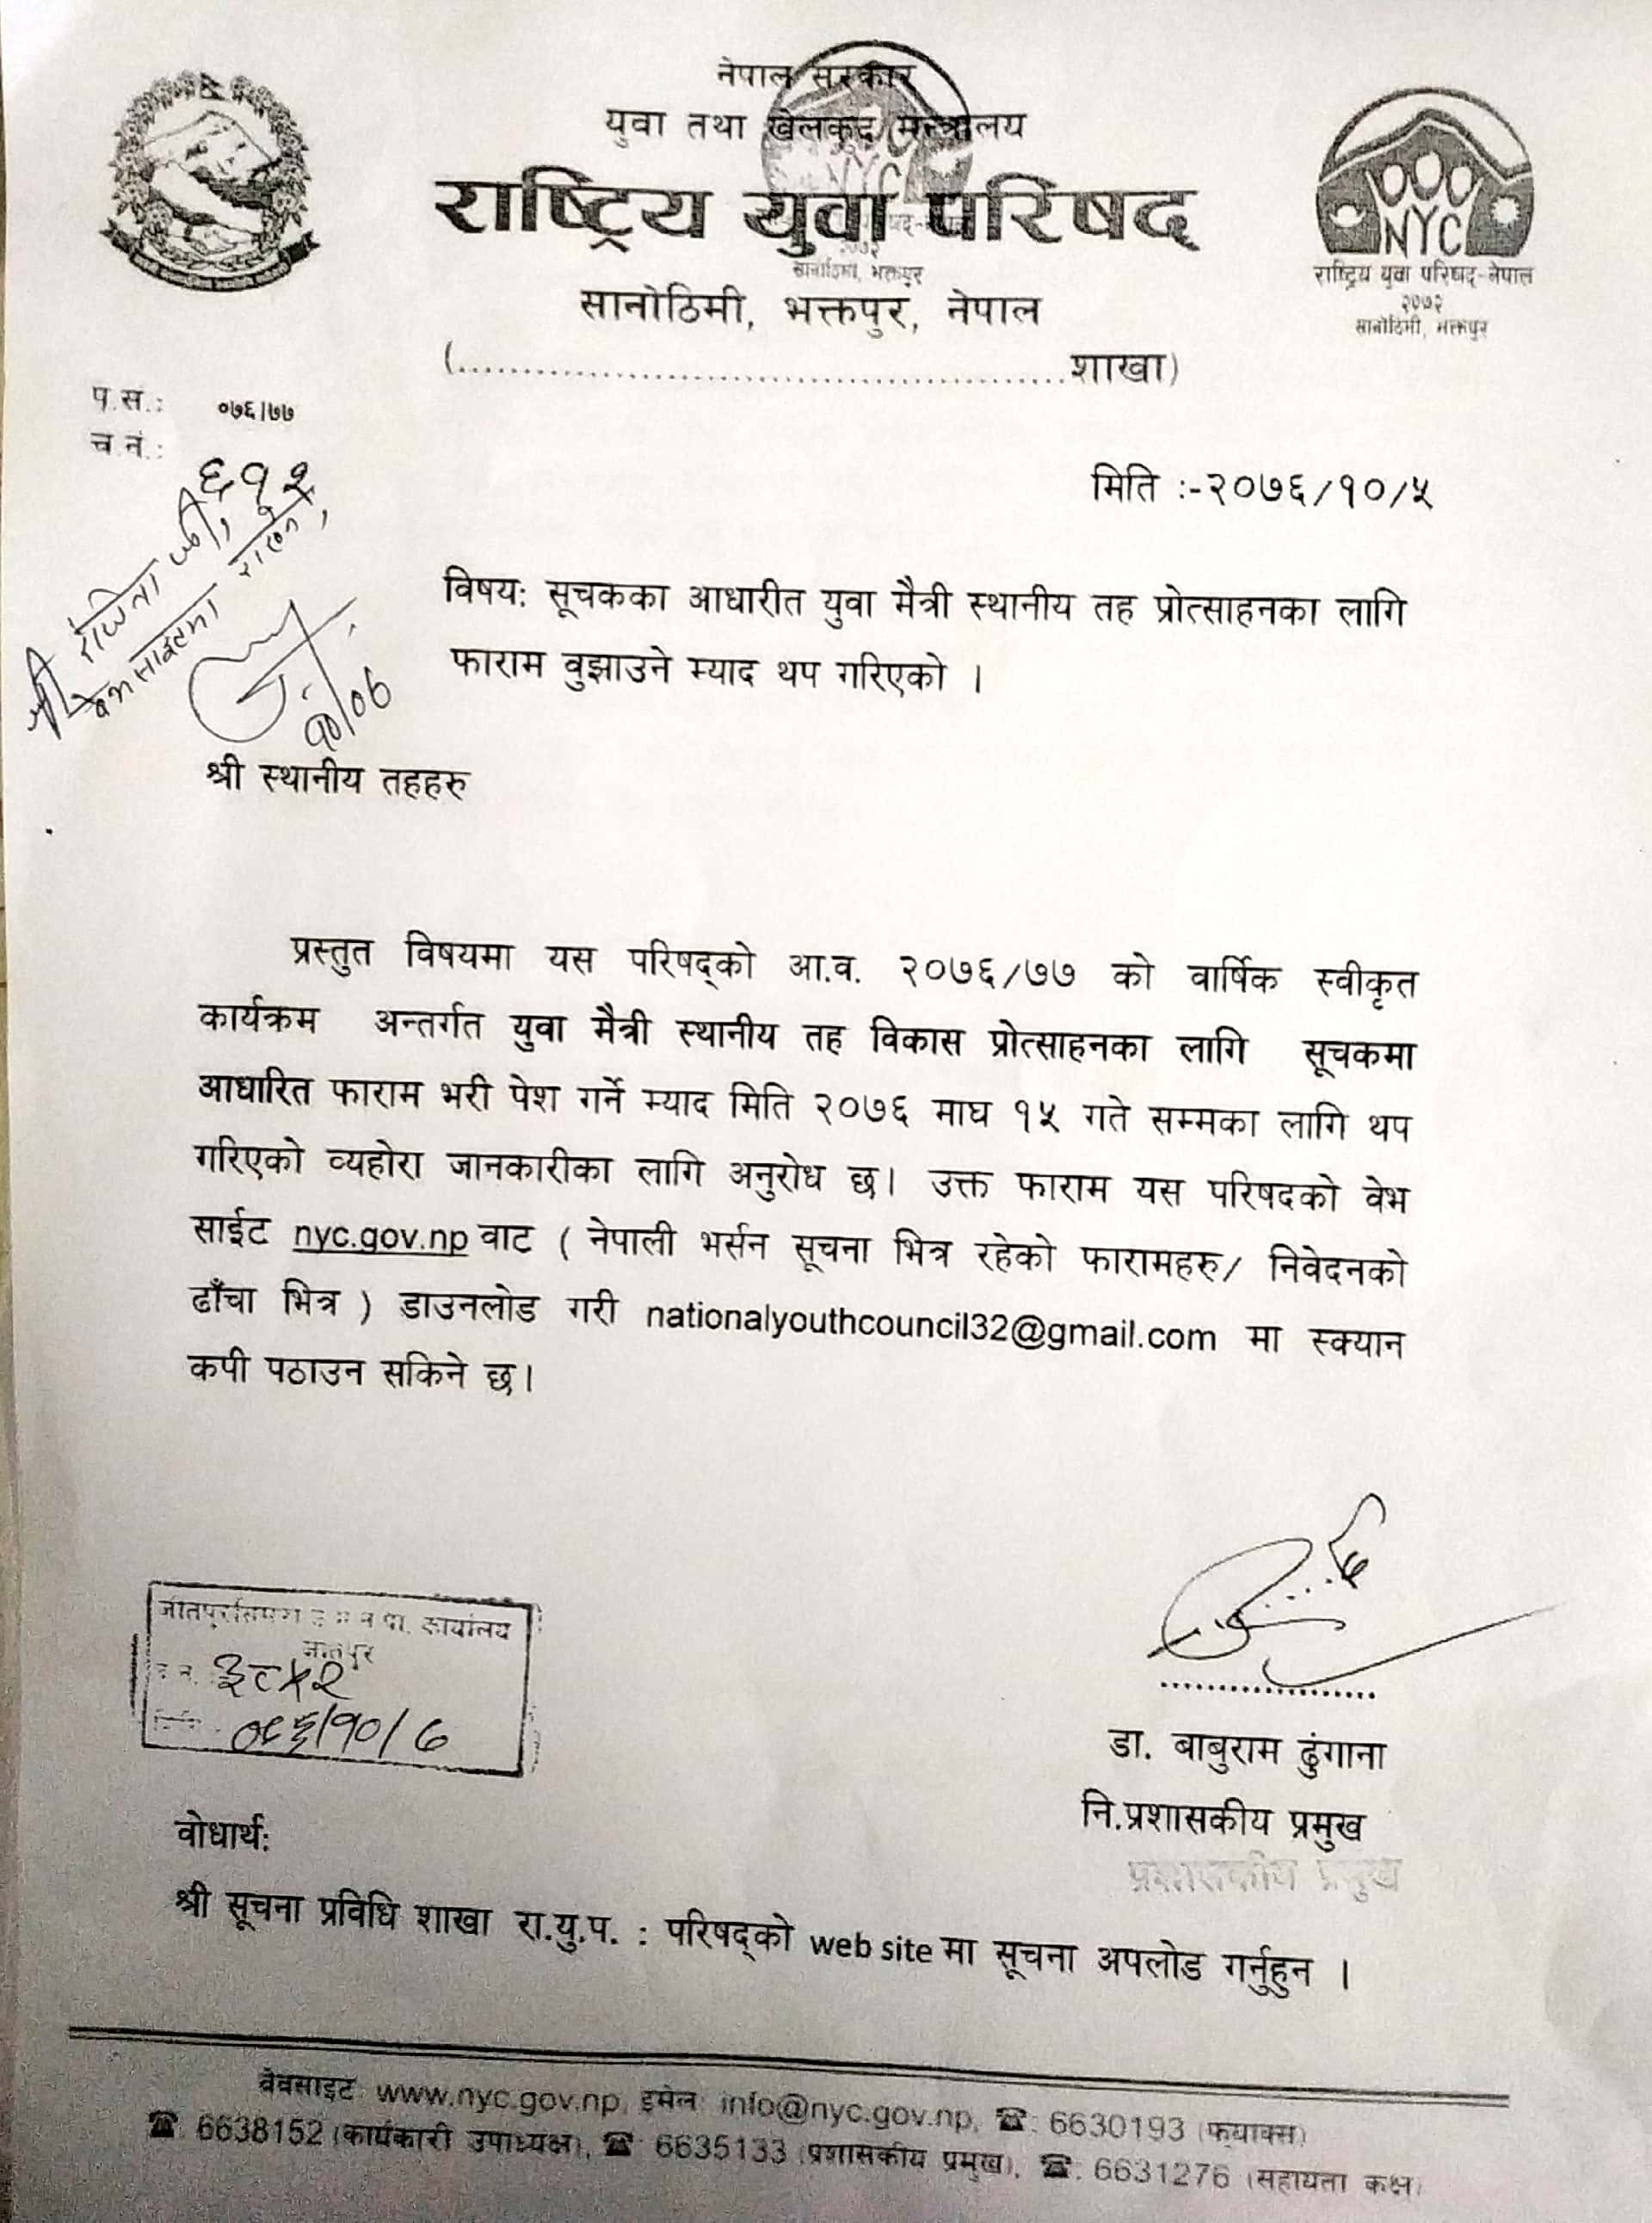 नेपाल सरकार
युवा तथा खेलकुद मन्त्रालय
राष्ट्रिय युवा परिषद
सानोठिमी, भक्तपुर, नेपाल
(..................................................शाखा)
NYC
राष्ट्रिय युवा परिषद्-नेपाल
२०७२
सानोठिमी, भक्तपुर
प.स.: ०७६।७७
च.नं.: ६१२
मिति :-२०७६/१०/५
विषय: सूचकका आधारीत युवा मैत्री स्थानीय तह प्रोत्साहनका लागि
फाराम वुझाउने म्याद थप गरिएको ।
१०/०७
श्री स्थानीय तहहरु
प्रस्तुत विषयमा यस परिषद्को आ.व. २०७६/७७ को वार्षिक स्वीकृत
कार्यक्रम अन्तर्गत युवा मैत्री स्थानीय तह विकास प्रोत्साहनका लागि सूचकमा
आधारित फाराम भरी पेश गर्ने म्याद मिति २०७६ माघ १५ गते सम्मका लागि थप
गरिएको व्यहोरा जानकारीका लागि अनुरोध छ। उक्त फाराम यस परिषदको वेभ
साईट nyc.gov.np वाट ( नेपाली भर्सन सूचना भित्र रहेको फारामहरु/ निवेदनको
ढाँचा भित्र ) डाउनलोड गरी nationalyouthcouncil32@gmail.com मा स्क्यान
कपी पठाउन सकिने छ।
कार्यालय
जीतपुर
३८५२
०७६/१०/७
डा. बाबुराम ढुंगाना
नि.प्रशासकीय प्रमुख
प्रशासकीय प्रमुख
वोधार्थ:
श्री सूचना प्रविधि शाखा रा.यु.प. : परिषद्को web site मा सूचना अपलोड गर्नुहुन ।
वेवसाइट: www.nyc.gov.np, इमेल: info@nyc.gov.np, ☎: 6630193 (फ्याक्स)
☎: 6638152 (कार्यकारी उपाध्यक्ष), ☎: 6635133 (प्रशासकीय प्रमुख), ☎: 6631276 (सहायता कक्ष)